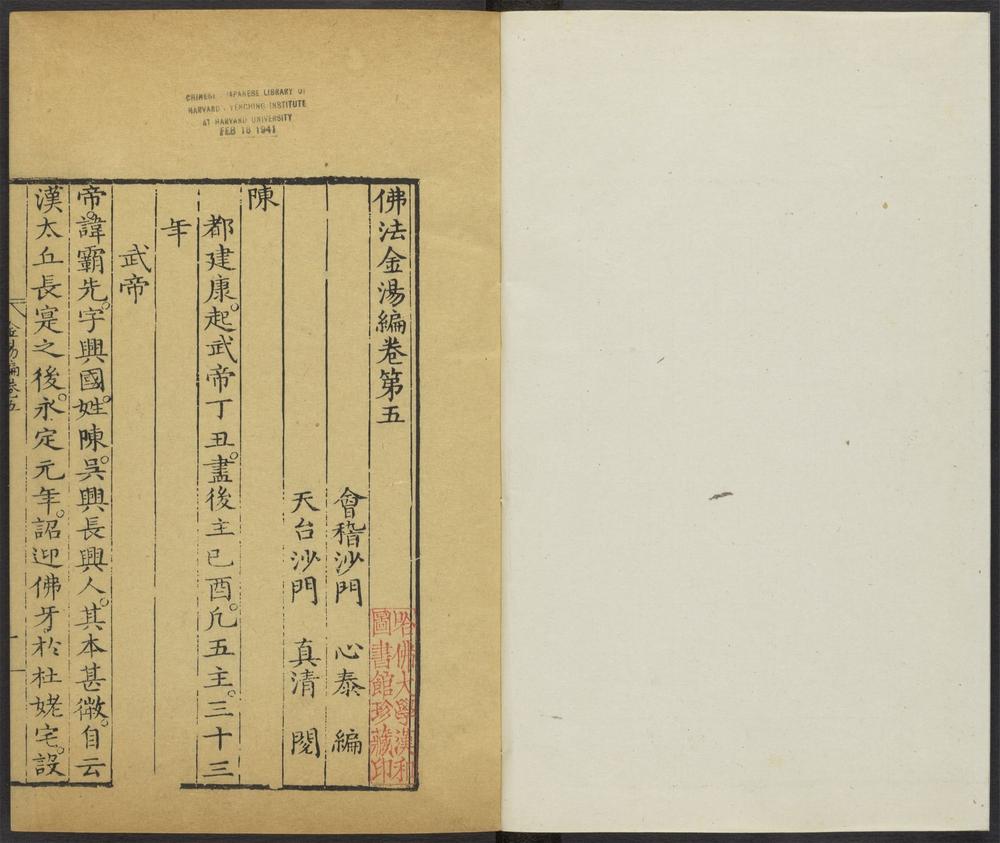 CHINESE - JAPANESE LIBRARY OF
HARVARD - YENCHING INSTITUTE
AT HARVARD UNIVERSITY
FEB 18 1941
佛法金湯編卷第五
會稽沙門 心泰 編
天台沙門 真清 閱
陳
都建康。起武帝丁丑。盡後主巳酉。凡五主。三十三
年
武帝
帝。諱霸先。字興國。姓陳。吳興長興人。其本甚微。自云
漢太丘長寔之後。永定元年。詔迎佛牙於杜姥宅。設
金湯編卷五
哈佛大學漢和
圖書館珍藏印